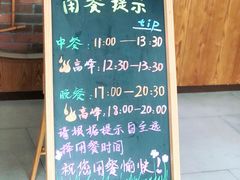 用餐提示
tip
中餐 11:00—13:30
高峰：12:30-13:30
晚餐 17:00-20:30
高峰：18:00-20:00
请根据提示自主选
择用餐时间
祝您用餐愉快！